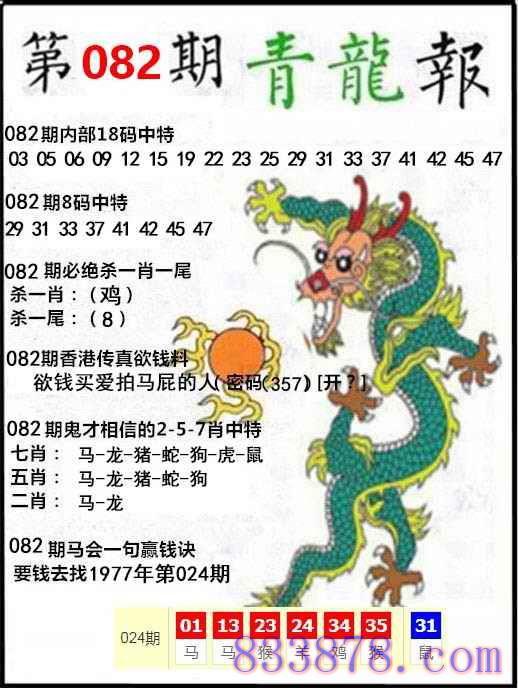 第082期青龍報
082期内部18码中特
03 05 06 09 12 15 19 22 23 25 29 31 33 37 41 42 45 47
082期8码中特
29 31 33 37 41 42 45 47
082期必绝杀一肖一尾
杀一肖：（鸡）
杀一尾：（8）
082期香港传真欲钱料
欲钱买爱拍马屁的人(密码(357)[开？]
082期鬼才相信的2-5-7肖中特
七肖： 马-龙-猪-蛇-狗-虎-鼠
五肖： 马-龙-猪-蛇-狗
二肖： 马-龙
082期马会一句赢钱诀
要钱去找1977年第024期
024期 01 13 23 24 34 35 31
马 马 猴 羊 鸡 猴 鼠
883878.com